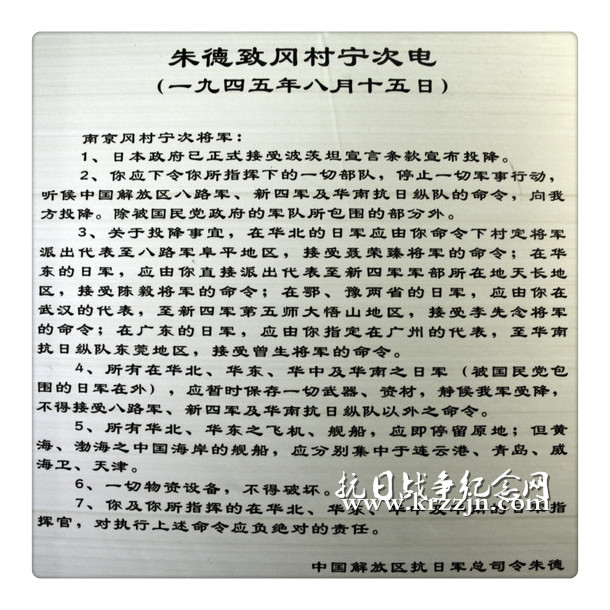 朱德致冈村宁次电
(一九四五年八月十五日)
南京冈村宁次将军：
1、日本政府已正式接受波茨坦宣言条款宣布投降。
2、你应下令你所指挥下的一切部队，停止一切军事行动，
听候中国解放区八路军、新四军及华南抗日纵队的命令，向我
方投降。除被国民党政府的军队所包围的部分外。
3、关于投降事宜，在华北的日军应由你命令下村定将军
派出代表至八路军阜平地区，接受聂荣臻将军的命令；在华
东的日军，应由你直接派出代表至新四军军部所在地天长地
区，接受陈毅将军的命令；在鄂、豫两省的日军，应由你在
武汉的代表，至新四军第五师大悟山地区，接受李先念将军
的命令；在广东的日军，应由你指定在广州的代表，至华南
抗日纵队东莞地区，接受曾生将军的命令。
4、所有在华北、华东、华中及华南之日军（被国民党包
围的日军在外），应暂时保存一切武器、资材，静候我军受降，
不得接受八路军、新四军及华南抗日纵队以外之命令。
5、所有华北、华东之飞机、舰船，应即停留原地；但黄
海、渤海之中国海岸的舰船，应分别集中于连云港、青岛、威
海卫、天津。
6、一切物资设备，不得破坏。
7、你及你所指挥的在华北、华东、
指
挥官，对执行上述命令应负绝对的责任。
中国解放区抗日军总司令朱德
抗日战争纪念网
www.krzzjn.com